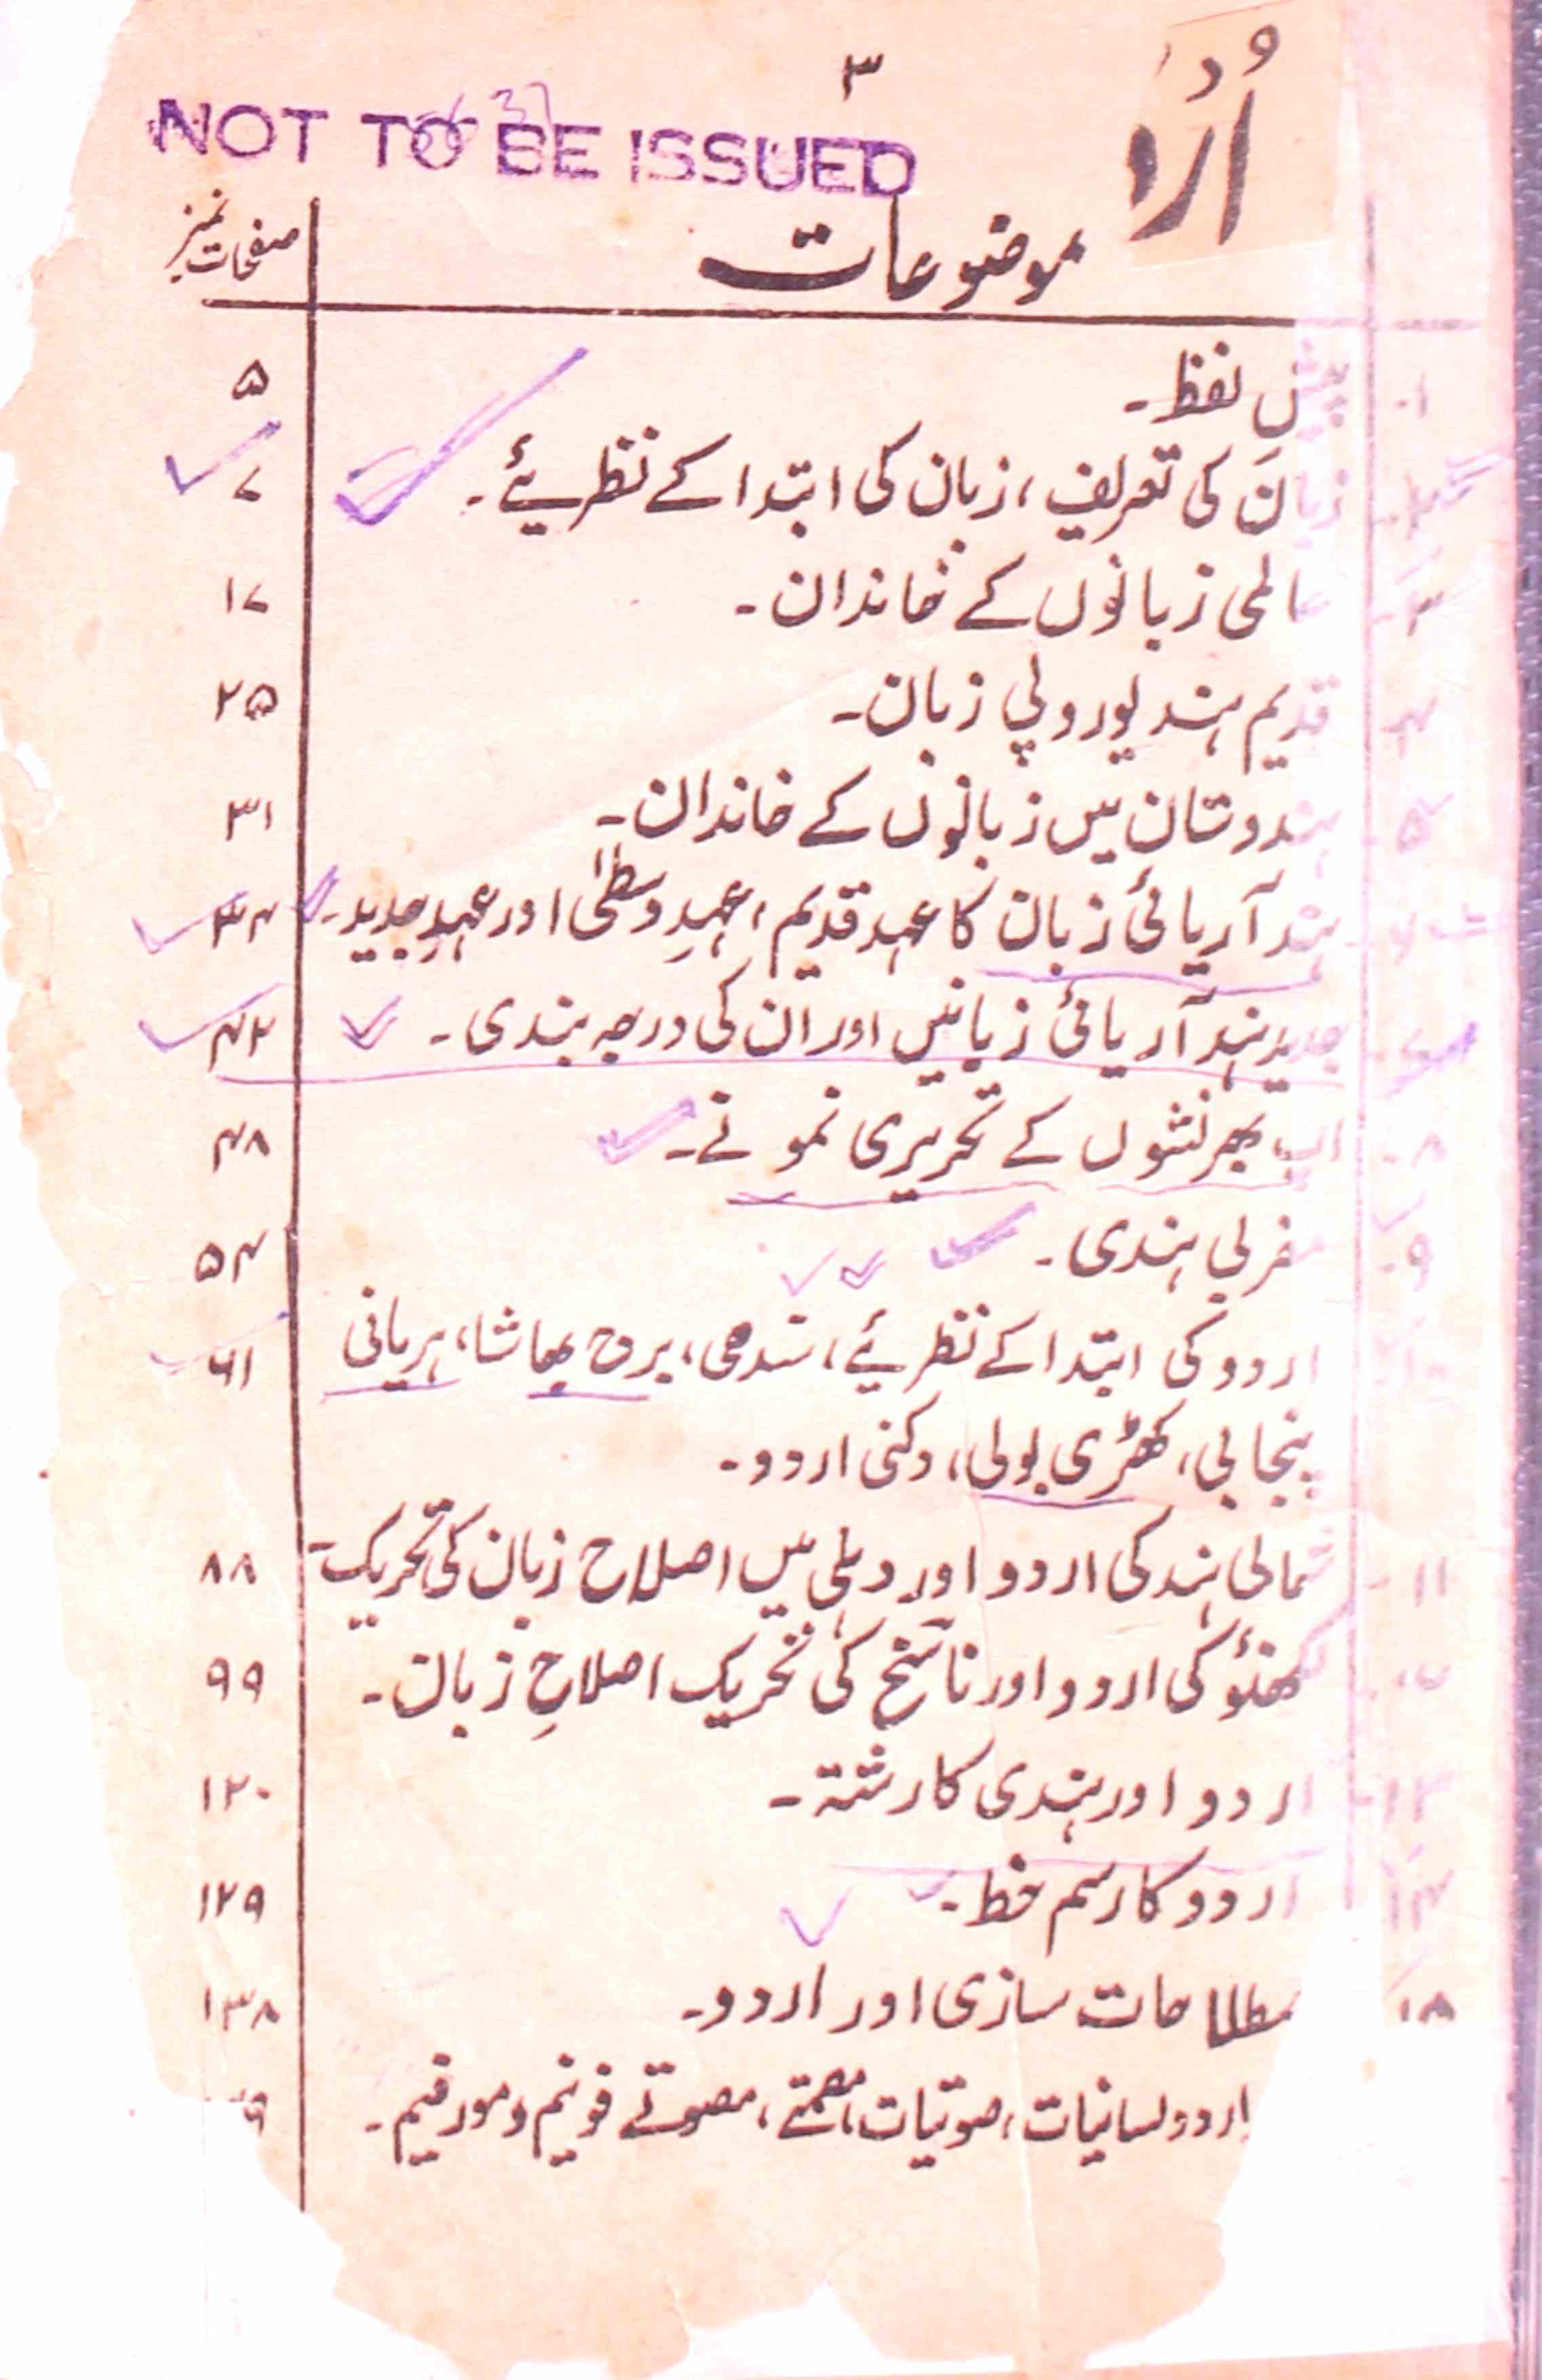 ۳
NOT TO BE ISSUED
موضوعات
صفحات نمبر
۱۔ پیش لفظ۔ ۵
زبان کی تعریف، زبان کی ابتدا کے نظریئے۔ ۷
۳ عالمی زبانوں کے خاندان۔ ۱۷
۴ قدیم ہند یوروپی زبان۔ ۲۵
۵۔ ہندوستان میں زبانوں کے خاندان۔ ۳۱
ہند آریائی زبان کا عہد قدیم، عہدِ وسطیٰ اور عہدِ جدید۔ ۳۴
۷۔ جدید ہند آریائی زبانیں اور ان کی درجہ بندی۔ ۴۲
۸۔ اپ بھرنشوں کے تحریری نمونے۔ ۴۸
۹۔ مغربی ہندی۔ ۵۴
اردو کی ابتدا کے نظریئے، سندھی، برج بھاشا، ہریانی ۶۱
پنجابی، کھڑی بولی، دکنی اردو۔
۱۱۔ شمالی ہند کی اردو اور دہلی میں اصلاح زبان کی تحریک۔ ۸۸
لکھنؤ کی اردو اور ناسخ کی تحریک اصلاحِ زبان۔ ۹۹
۱۳۔ اردو اور ہندی کا رشتہ۔ ۱۲۰
۱۴ اردو کا رسم خط۔ ۱۲۹
۱۵ سازی اور اردو۔ ۱۳۸
اردو لسانیات، صوتیات، مصمتے، مصوتے فونیم و مورفیم۔